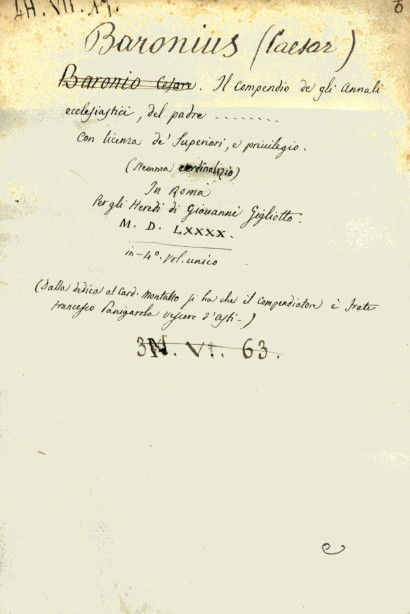 14. VII. 17.
Baronius (Caesar)
Baronio Cesare. Il Compendio de gli Annali
ecclesiastici, del padre ........
Con licenza de' Superiori, e privilegio.
(Stemma cardinalizio)
In Roma
Per gli Heredi di Giovanni Gigliotto.
M. D. LXXXX.
in-4°. Vol. unico
(Dalla dedica al Card. Montalto si ha che il Compendiatore è frate
Francesco Panigarola vescovo d'Asti-)
3N. VI. 63.